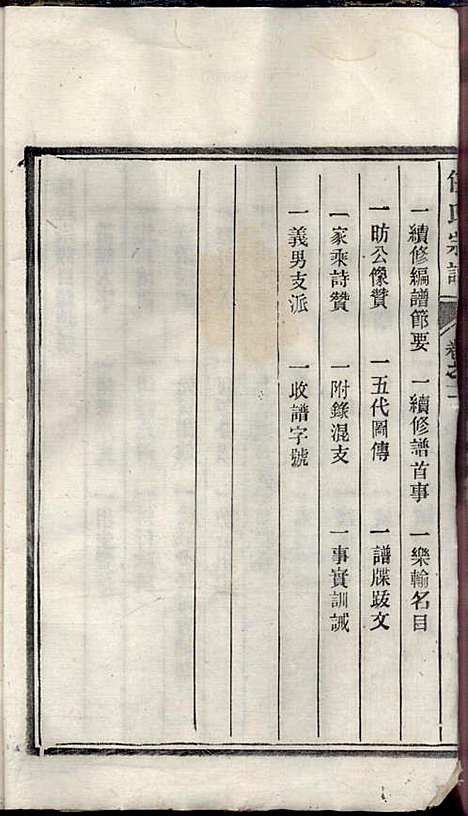 氏宗譜 卷之一
一續修編譜節要 一續修譜首事 一樂輸名目
一昉公像贊 一五代圖傳 一譜牒跋文
一家乘詩贊 一附錄混支 一事實訓誡
一義男支派 一收譜字號